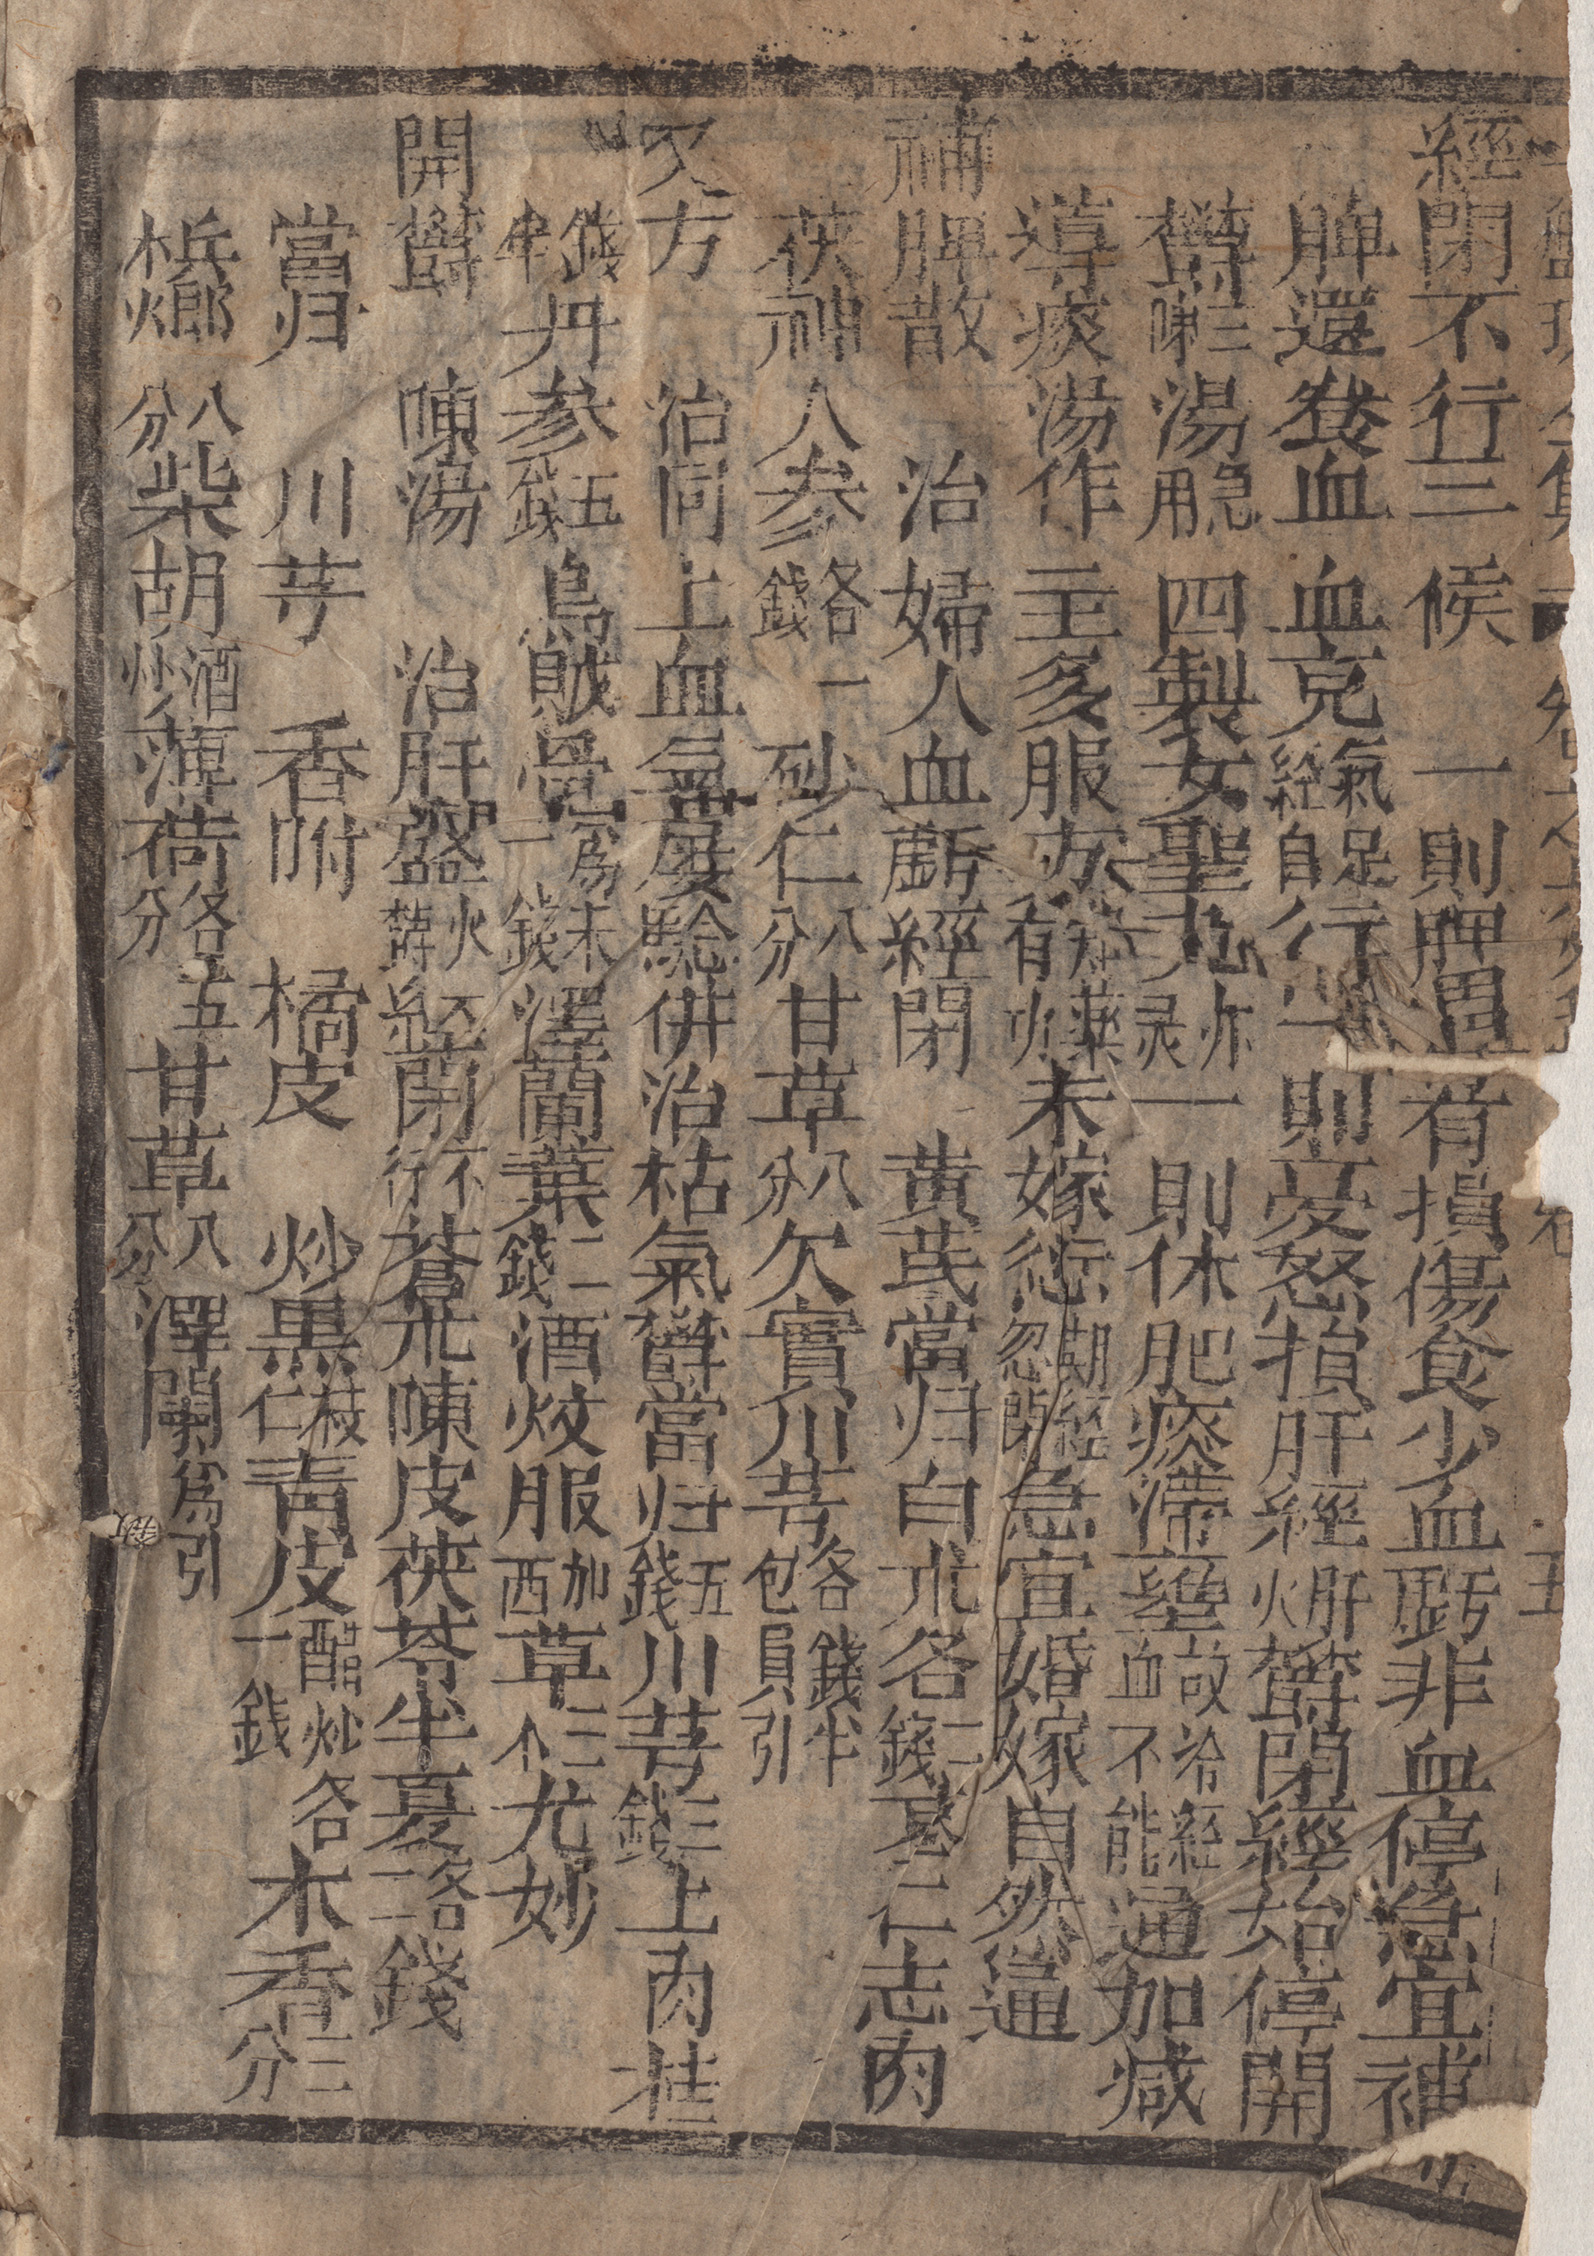 經閉不行三候 一則脾胃有損傷食少血虧非血停急宜補
脾還養血血克經氣自足行一則憂怒損肝經火肝欝閉經始停開
欝㖦二湯用急四製女聖丸一則休肥痰滯壅血故不冷能經通加減
導痰湯作主多服有藥火未嫁忽胡閉經急宜婚嫁自然通
補脾散 治婦人血虧經閉 黃茋當归白朮各錢二棗仁志肉
茯神人參錢各一砂仁分八甘草分八欠實川芎包各員錢引半
又方 治同上血氣屡驗併治枯氣欝當归錢五川芎錢三上肉桂
半錢丹參錢五烏賊骨一為錢末澤蘭葉錢二酒煅服西加草个三尤妙
開欝㖦湯 治肝盛欝火經閉行不蒼朮陳皮茯苓半夏二各錢
當归 川芎 香附 橘皮 炒黑仁梔青皮一醋錢炒各木香分三
檳榔分八柴胡炒酒薄荷分各五甘草分八澤蘭為引